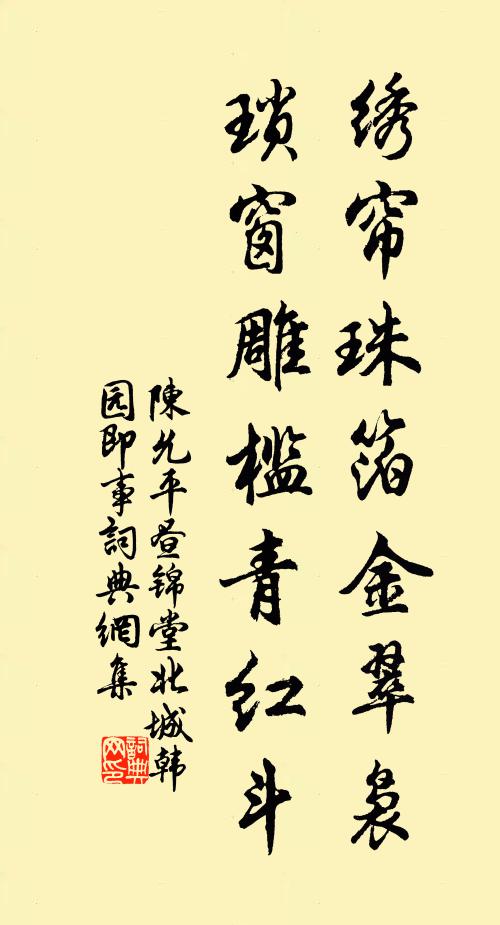 绣帘珠箔金翠袅
琐窗雕槛青红斗
陳允平昼锦堂北城韩
园即事詞典網集
詞典
网印